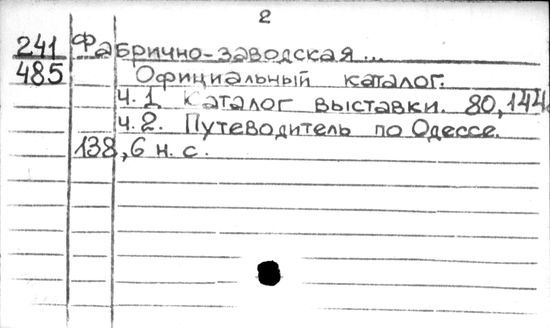 2
241 Фабрично-заводская ...
485 Официальный каталог.
ч. 1 Каталог выставки. 80, 144
ч. 2. Путеводитель по Одессе.
138, 6 н. с.